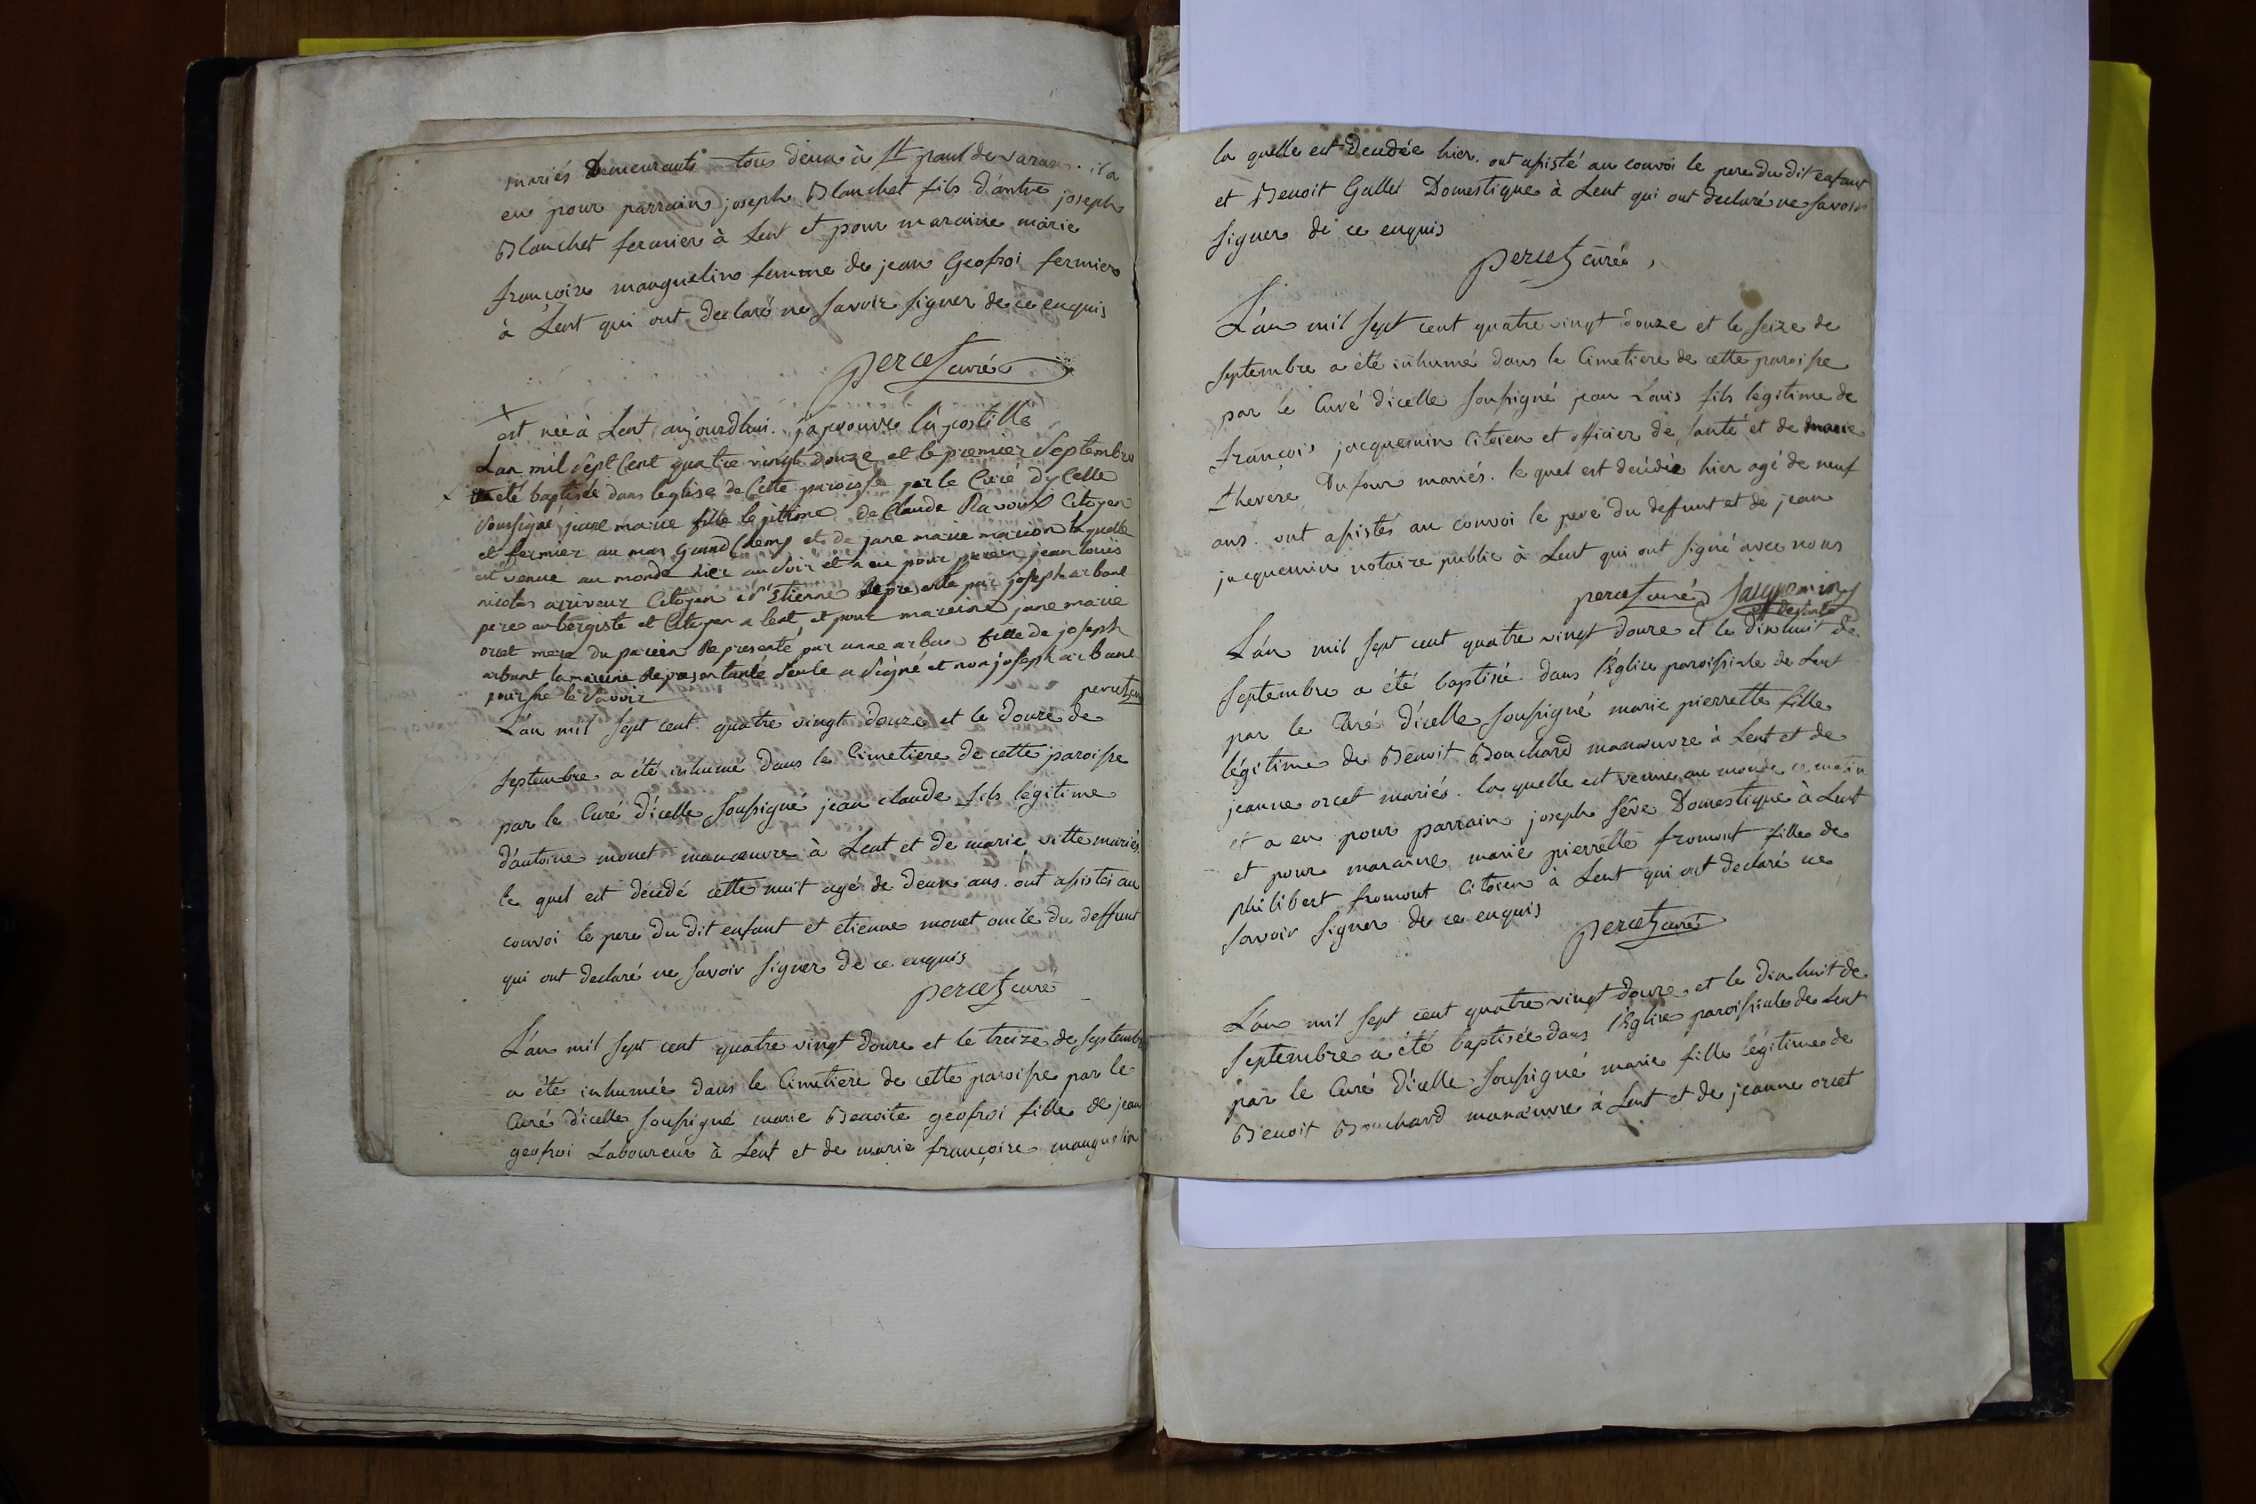 mariés Demeurants tous deux à St paul de varax. il a
eu pour parrain joseph Blanchet fils d'autre joseph
Blanchet fermier à Lent et pour maraine marie
françoise manguelin femme de jean Geofroi fermier
à Lent qui ont declaré ne savoir signer de ce enquis
percet curé
est née à Lent aujourdhui. japrouve lapostille
Lan mil sept Cent quatre vingt douze et le premier Septembre
a été baptisée dans leglise de Cette paroisse par le Curé dycelle
soussigné jane marie fille legittime de Claude Ravoux Citoyen
et fermier au mas Grand et de jane marie marion laquelle
est venue au monde hier au soir et a eu pour parein jean louis
nicolas Citoyen a st Etienne Representé par joseph arbant
pere aubergiste et Citoyen a lent et pour mareine jane marie
orcet mere du parein Representé par anne arban fille de joseph
arbant la mareine Representanté seule a signé et non joseph arbant
pour ne le savoir percet curé
L'an mil sept cent quatre vingt douze et le douze de
septembre a été inhumé dans le Cimetiere de cette paroisse
par le Curé d'icelle soussigné jean claude fils légitime
d'antoine monet manœuvre à Lent et de marie vitte mariés
le quel est décédé cette nuit agé de deux ans. ont assistés au
convoi le pere du dit enfant et etienne monet oncle du deffunt
qui ont declaré ne savoir signer de ce enquis
percet curé
L'an mil sept cent quatre vingt douze et le treize de septembre
a été inhumée dans le Cimetiere de cette paroisse par le
Curé d'icelle soussigné marie Benoite geofroi fille de jean
geofroi Laboureur à Lent et de marie françoise manguelin
la quelle est decedée hier. ont assisté au convoi le pere du dit enfant
et Benoit Gallet Domestique à Lent qui ont declaré ne savoir
signer de ce enquis
percet curé
L'an mil sept cent quatre vingt douze et le seize de
septembre a été inhumé dans le Cimetiere de cette paroisse
par le Curé d'icelle soussigné jean Louis fils légitime de
françois jacquemin Citoien et officier de santé et de marie
therese Dufour mariés. le quel est décédé hier agé de neuf
ans. ont assistés au convoi le pere du deffunt et de jean
jacquemin notaire public à Lent qui ont signé avec nous
percet curé Jacquemin
L'an mil sept cent quatre vingt douze et le dixhuit de
septembre a été baptisé dans l'Église paroissiale de Lent
par le Curé d'icelle soussigné marie pierrette fille
légitime de Benoit Bouchard manœuvre à Lent et de
jeanne orcet mariés. la quelle est venue au monde ce matin
et a eu pour parrain joseph Sêve Domestique à Lent
et pour maraine marie pierrette fromont fille de
philibert fromont Citoien à Lent qui ont declaré ne
savoir signer de ce enquis percet curé
L'an mil sept cent quatre vingt douze et le dix huit de
septembre a été baptisée dans l'Église paroissiale de Lent
par le Curé d'icelle soussigné marie fille légitime de
Benoit Bouchard manœuvre à Lent et de jeanne orcet